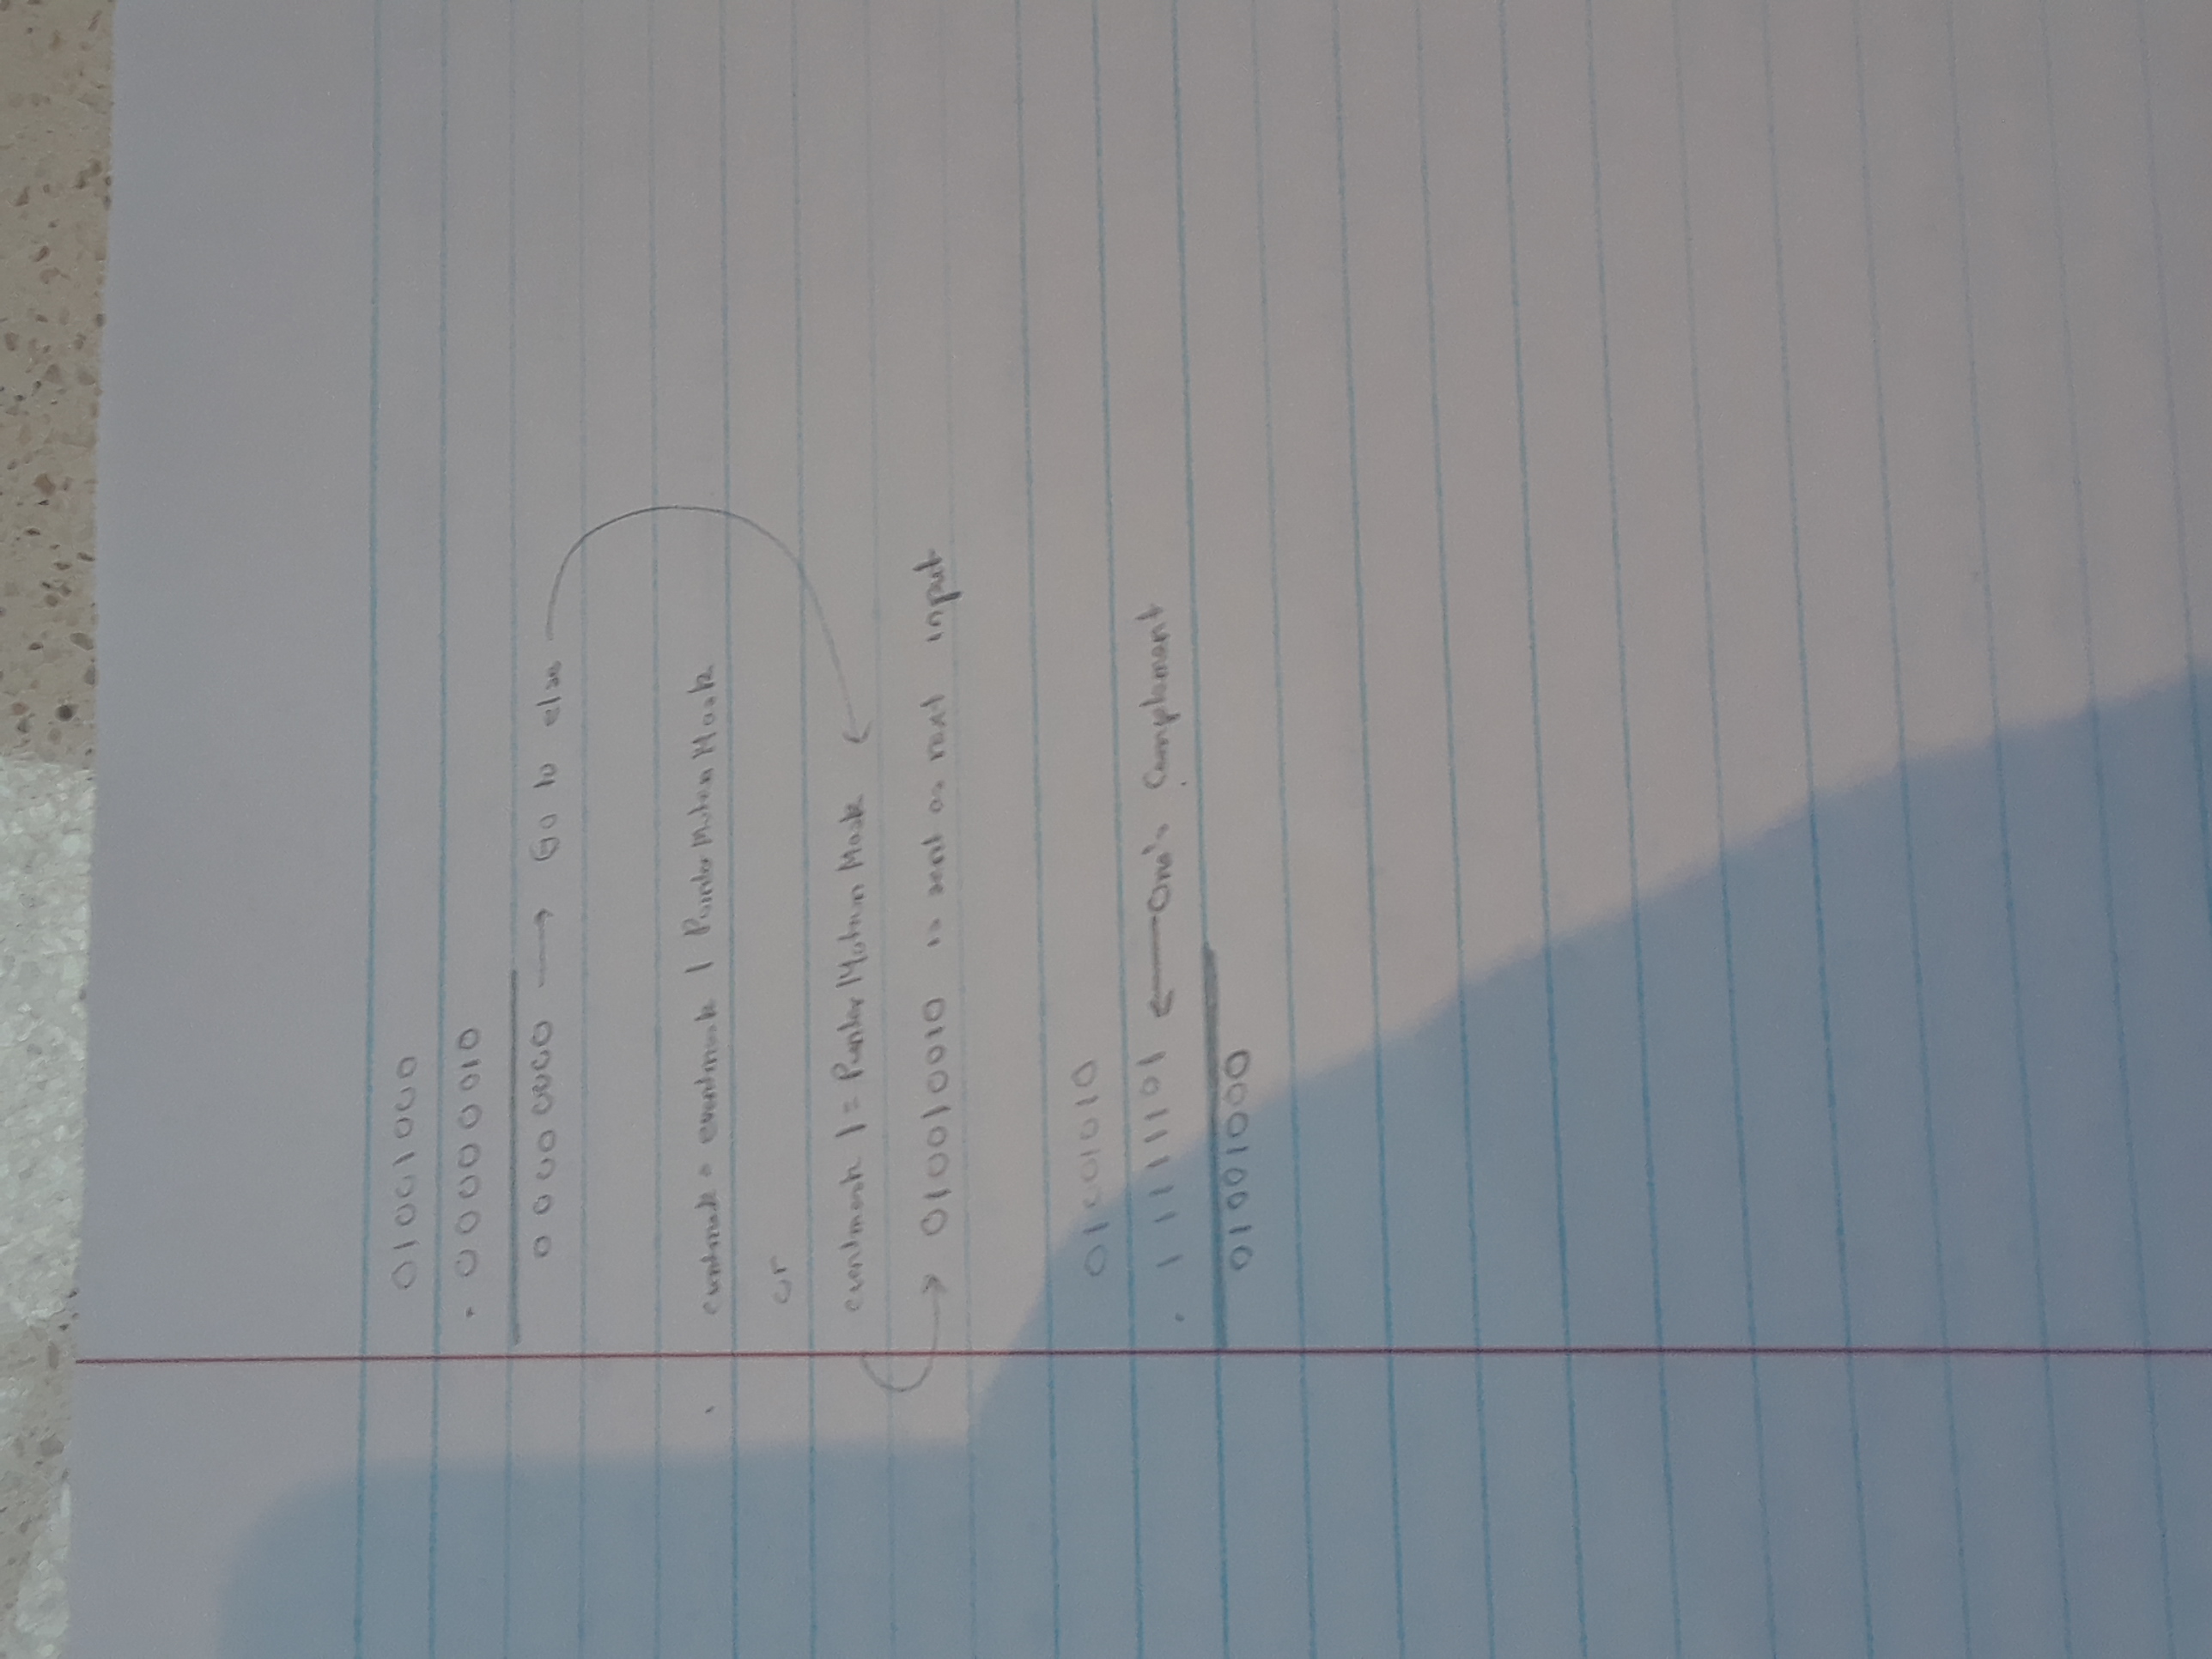 01001000
. 00000010
00000000 → Go to else
eventmask = eventmask | PointerMotionMask
or
eventmask |= PointerMotionMask ←
→ 010010010 is sent as next input
01001010
. 11111101 ← One's Complement
01001000